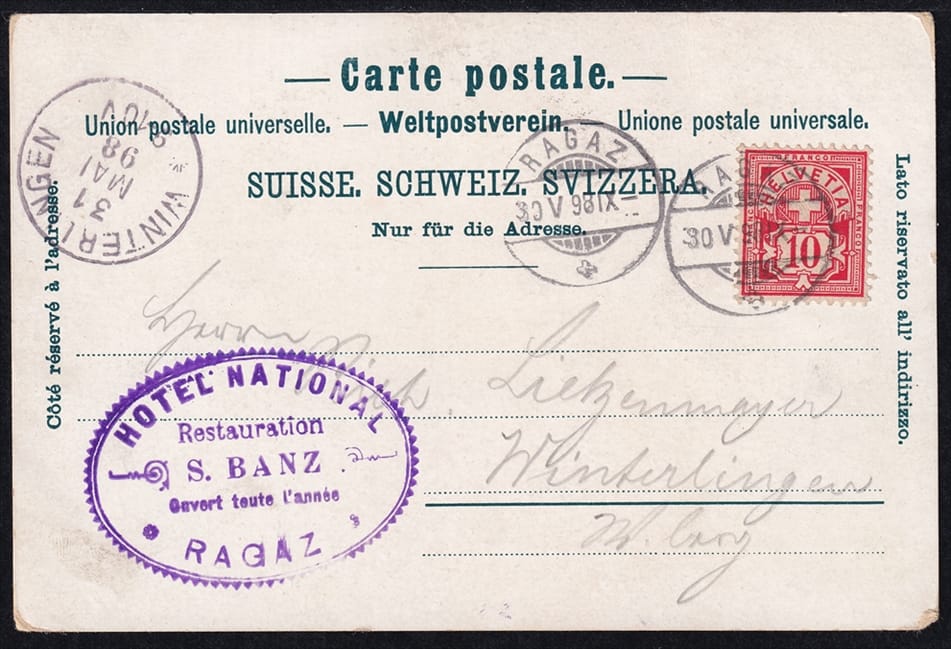 — Carte postale. —
Union postale universelle. — Weltpostverein. — Unione postale universale.
SUISSE. SCHWEIZ. SVIZZERA.
Nur für die Adresse.
Côté réservé à l'adresse.
Lato riservato all' indirizzo.
WINTERLINGEN
31
MAI
98
RAGAZ
30 V 98 IX
RAGAZ
30 V 98
FRANCO
HELVETIA
10
Herrn
Lietzenmayer
Winterlingen
HOTEL NATIONAL
Restauration
S. BANZ
Ouvert toute l'année
RAGAZ